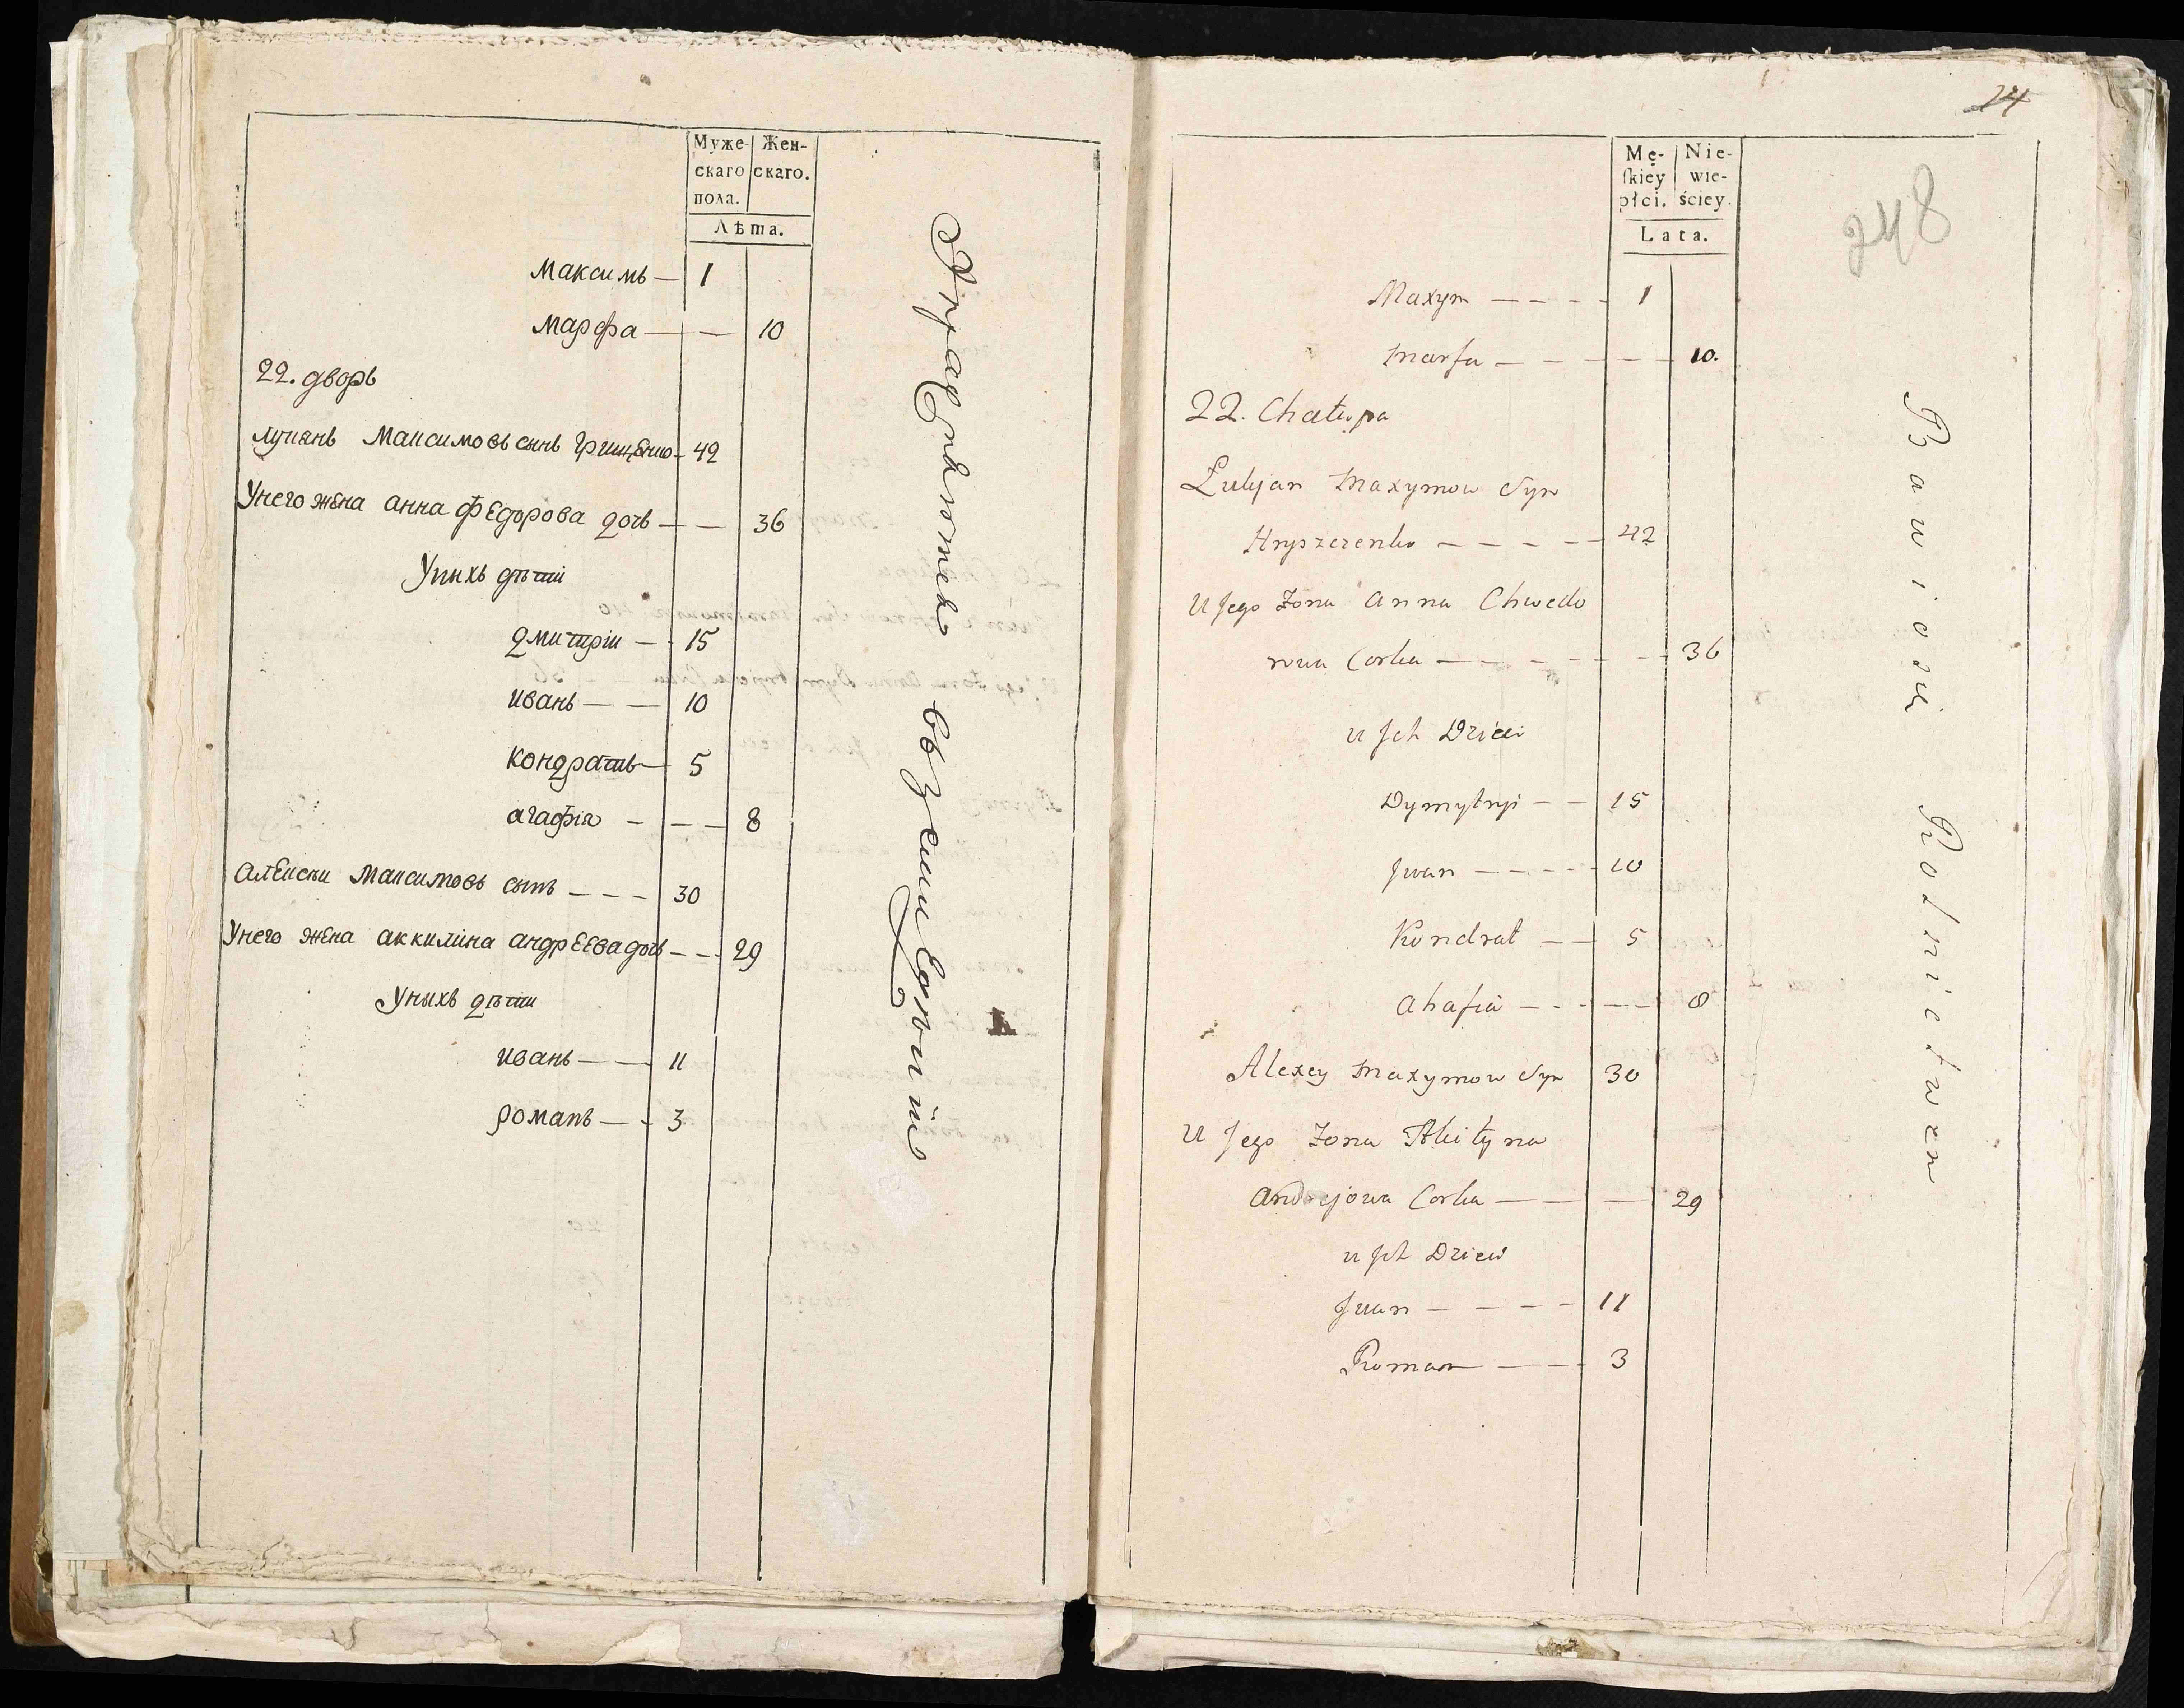 Муже-
скаго
пола.
Жен-
скаго.
Лѣта.
Максимъ — 1
Марфа — — 10
22. дворъ
Лукянъ Максимовъ сынъ Грищенко — 42
Унего жена анна Федорова дочь — — 36
Уныхъ дѣти
Дмитріи — 15
иванъ — — 10
Кондрать — 5
агафія — — — 8
Алекси Максимовъ сынъ — — — 30
Унего жена аккилина андреева дочь — — — 29
Уныхъ дѣти
иванъ — — 11
романъ — — 3
24
248
Mę-
ſkiey
płci.
Nie-
wie-
ściey.
Lata.
Maxym — — — — 1
Marfa — — — — — 10.
22. Chałupa
Łukjan Maxymow Syn
Hryszczenko — — — — — 42
U Jego Żona Anna Chwedo
rowa Corka — — — — — — — 36
u Jch Dzieci
Dymytryi — — 15
Jwan — — — — — 10
Kondrat — — 5
Ahafia — — — — — 8
Alexey Maxymow Syn 30
U Jego Żona Akiłyna
Andrejowa Corka — — — 29
u Jch Dzieci
Jwan — — — — 11
Roman — — — 3
Bawiący Rolnictwem